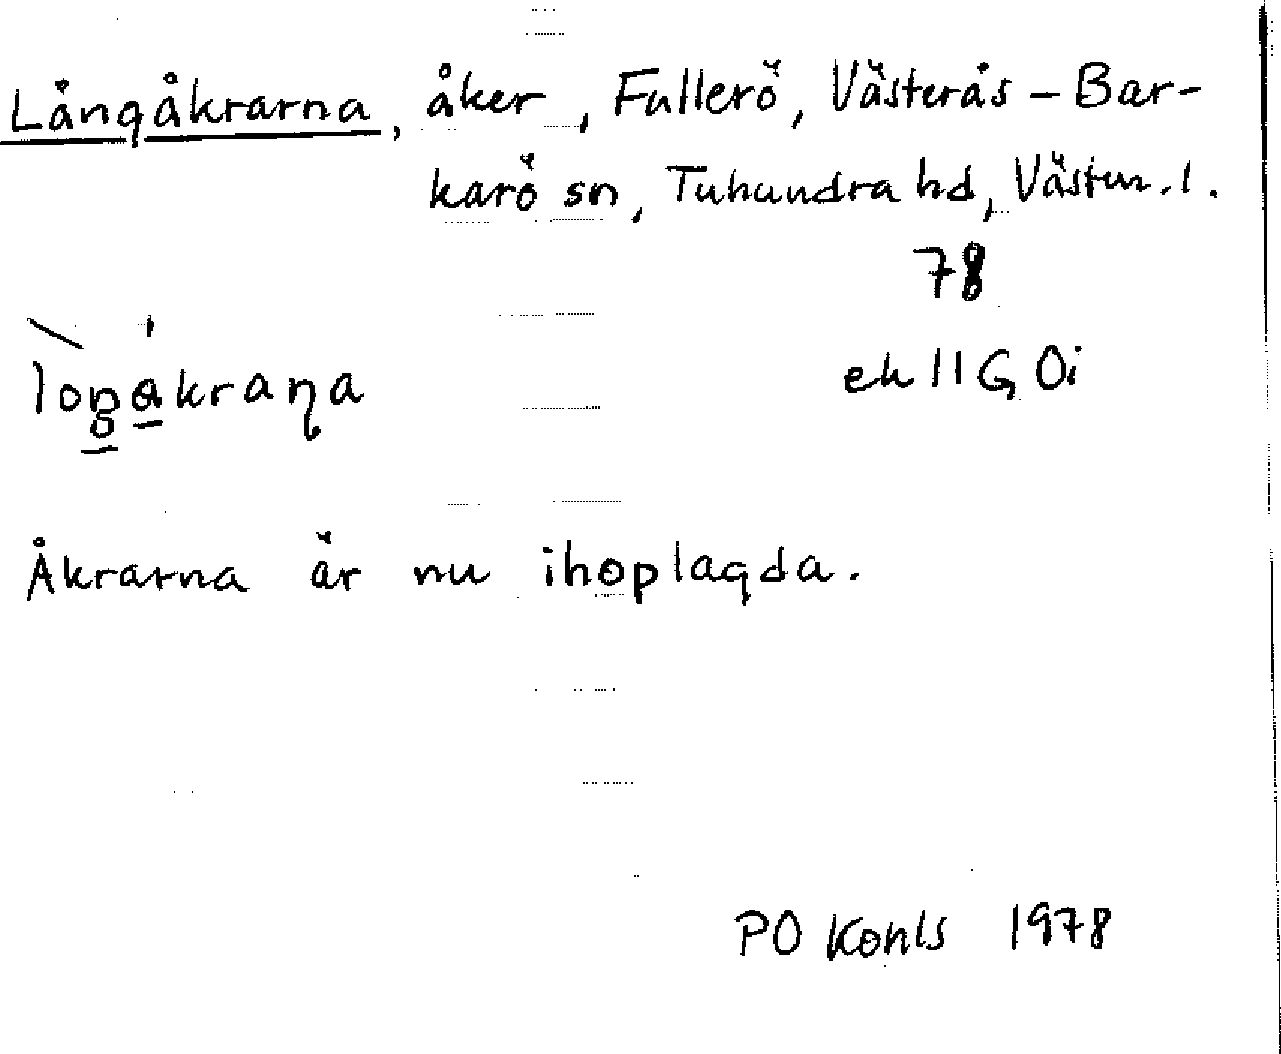 Långåkrarna, åker, Fullerö, Västerås-Bar-
karö sn, Tuhundra hd, Västm. l.
78
ek 11 G, Oi
Åkrarna är nu ihoplagda.
PO Konls 1978